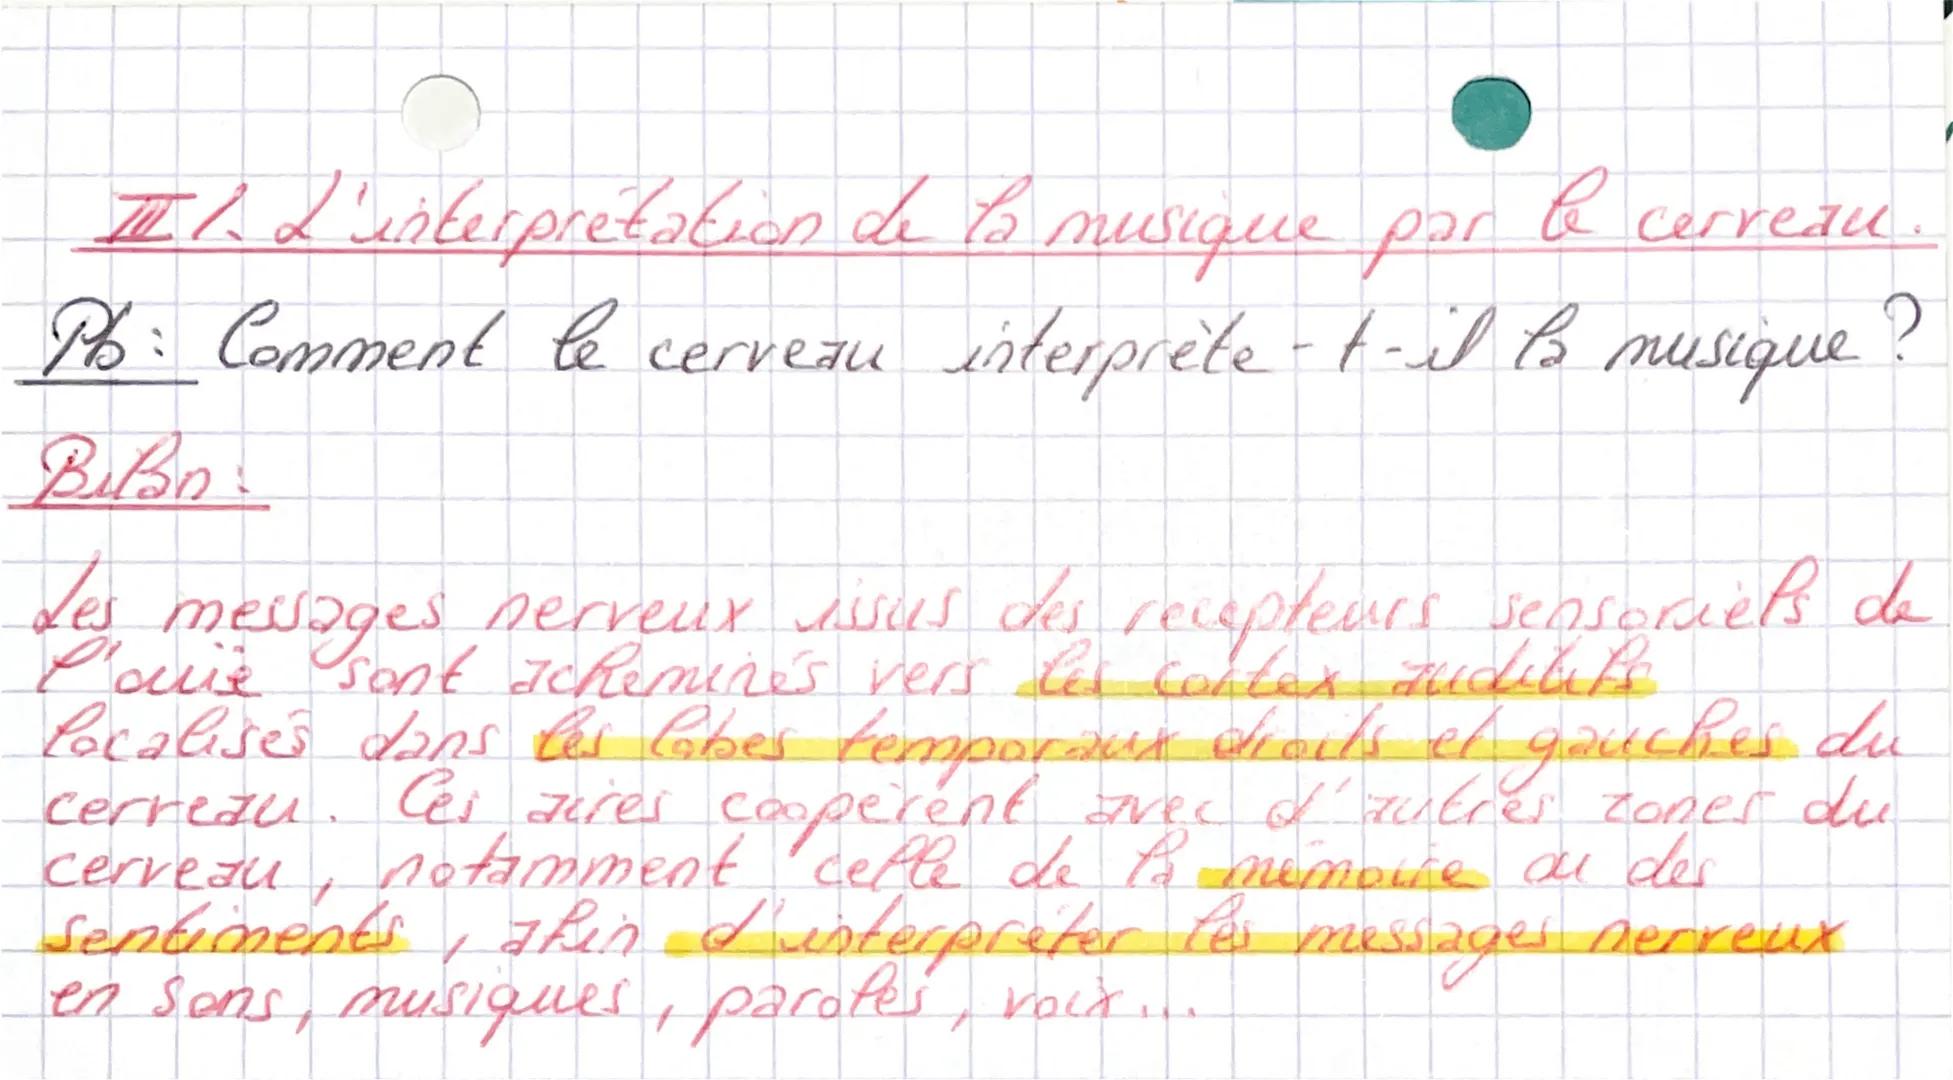 III/. L'interprétation de la musique par le cerveau.
Pb: Comment le cerveau interprète-t-il la musique ?
Bilan:
Les messages nerveux issus des récepteurs sensoriels de
l'ouïe sont acheminés vers les cortex auditifs
localisés dans les lobes temporaux droits et gauches du
cerveau. Ces aires coopèrent avec d'autres zones du
cerveau, notamment celle de la mémoire ou des
sentiments, afin d'interpréter les messages nerveux
en sons, musiques, paroles, voix...